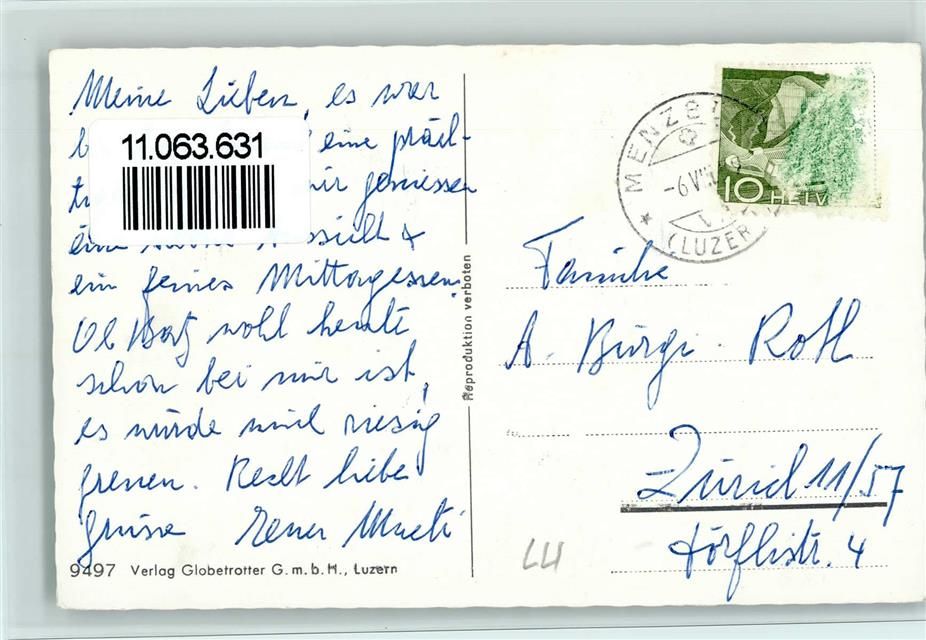 Meine Lieben, es war
11.063.631
eine präch-
wir geniessen
eine
ein feines Mittagessen.
Ob wohl heute
schon bei mir ist,
es würde mich riesig
freuen. Recht liebe
Grüsse Euer
9497 Verlag Globetrotter G.m.b.H., Luzern
Reproduktion verboten
MENZB
-6.VII
(LUZER
10 HELV
Familie
A. Bürgi-Roth
Zürich 11/57
Dörflistr. 4
LU